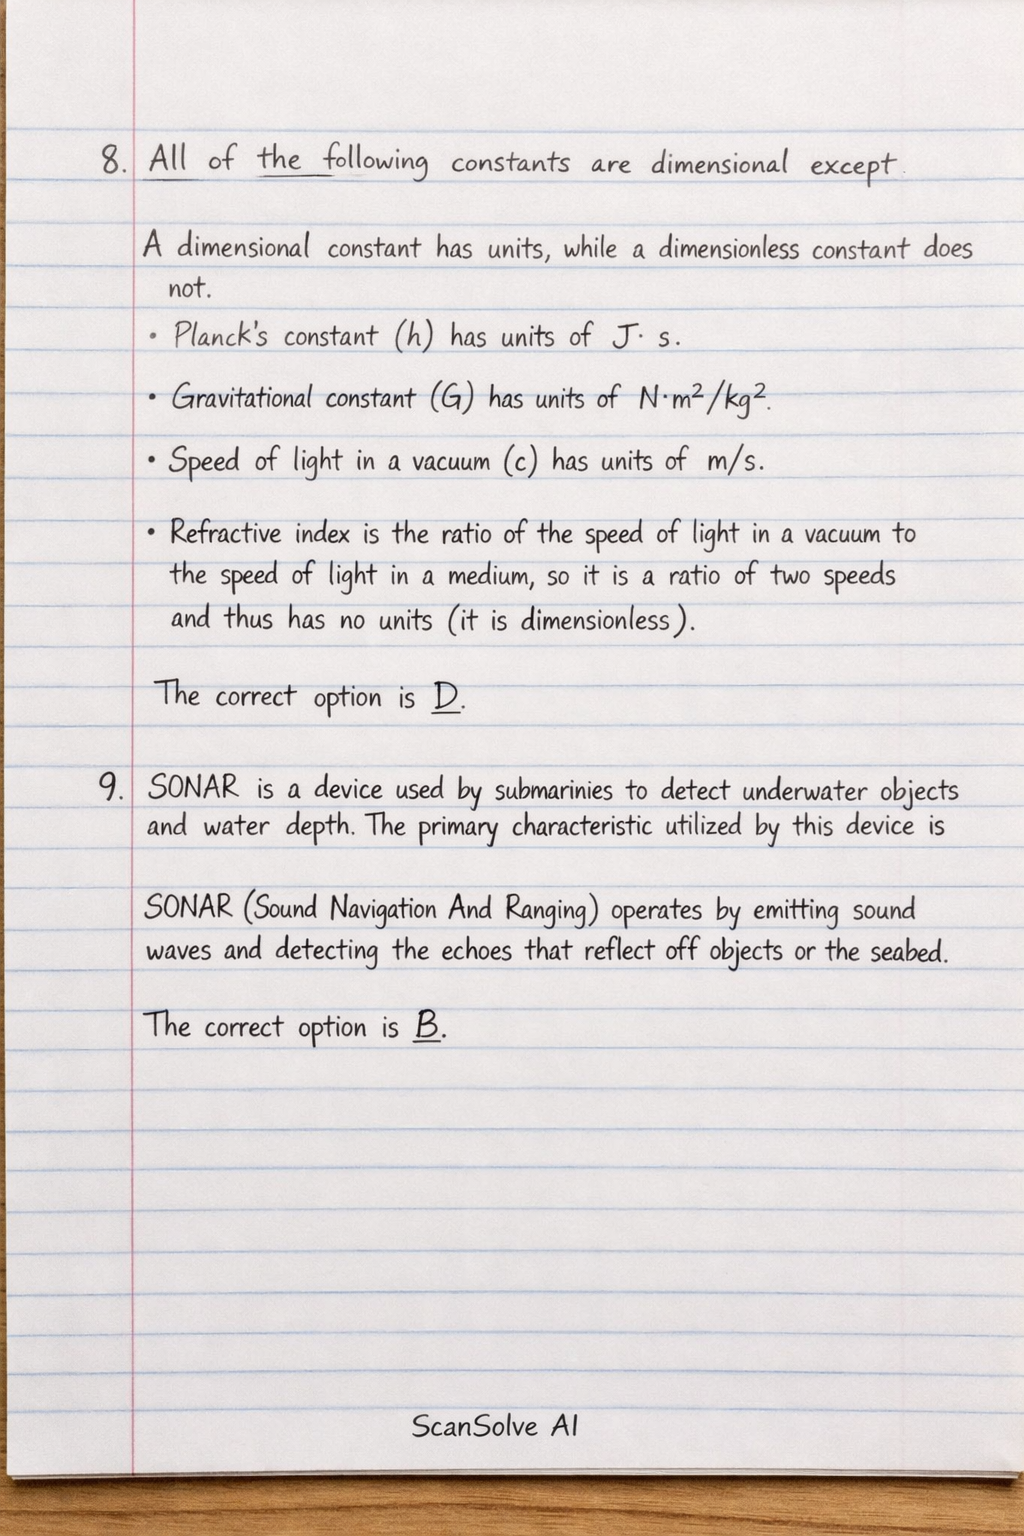 8. All of the following constants are dimensional except.
A dimensional constant has units, while a dimensionless constant does
not.
• Planck's constant (h) has units of J· s.
• Gravitational constant (G) has units of N·m²/kg².
• Speed of light in a vacuum (c) has units of m/s.
• Refractive index is the ratio of the speed of light in a vacuum to
the speed of light in a medium, so it is a ratio of two speeds
and thus has no units (it is dimensionless).
The correct option is D.
9. SONAR is a device used by submarinies to detect underwater objects
and water depth. The primary characteristic utilized by this device is
SONAR (Sound Navigation And Ranging) operates by emitting sound
waves and detecting the echoes that reflect off objects or the seabed.
The correct option is B.
ScanSolve AI